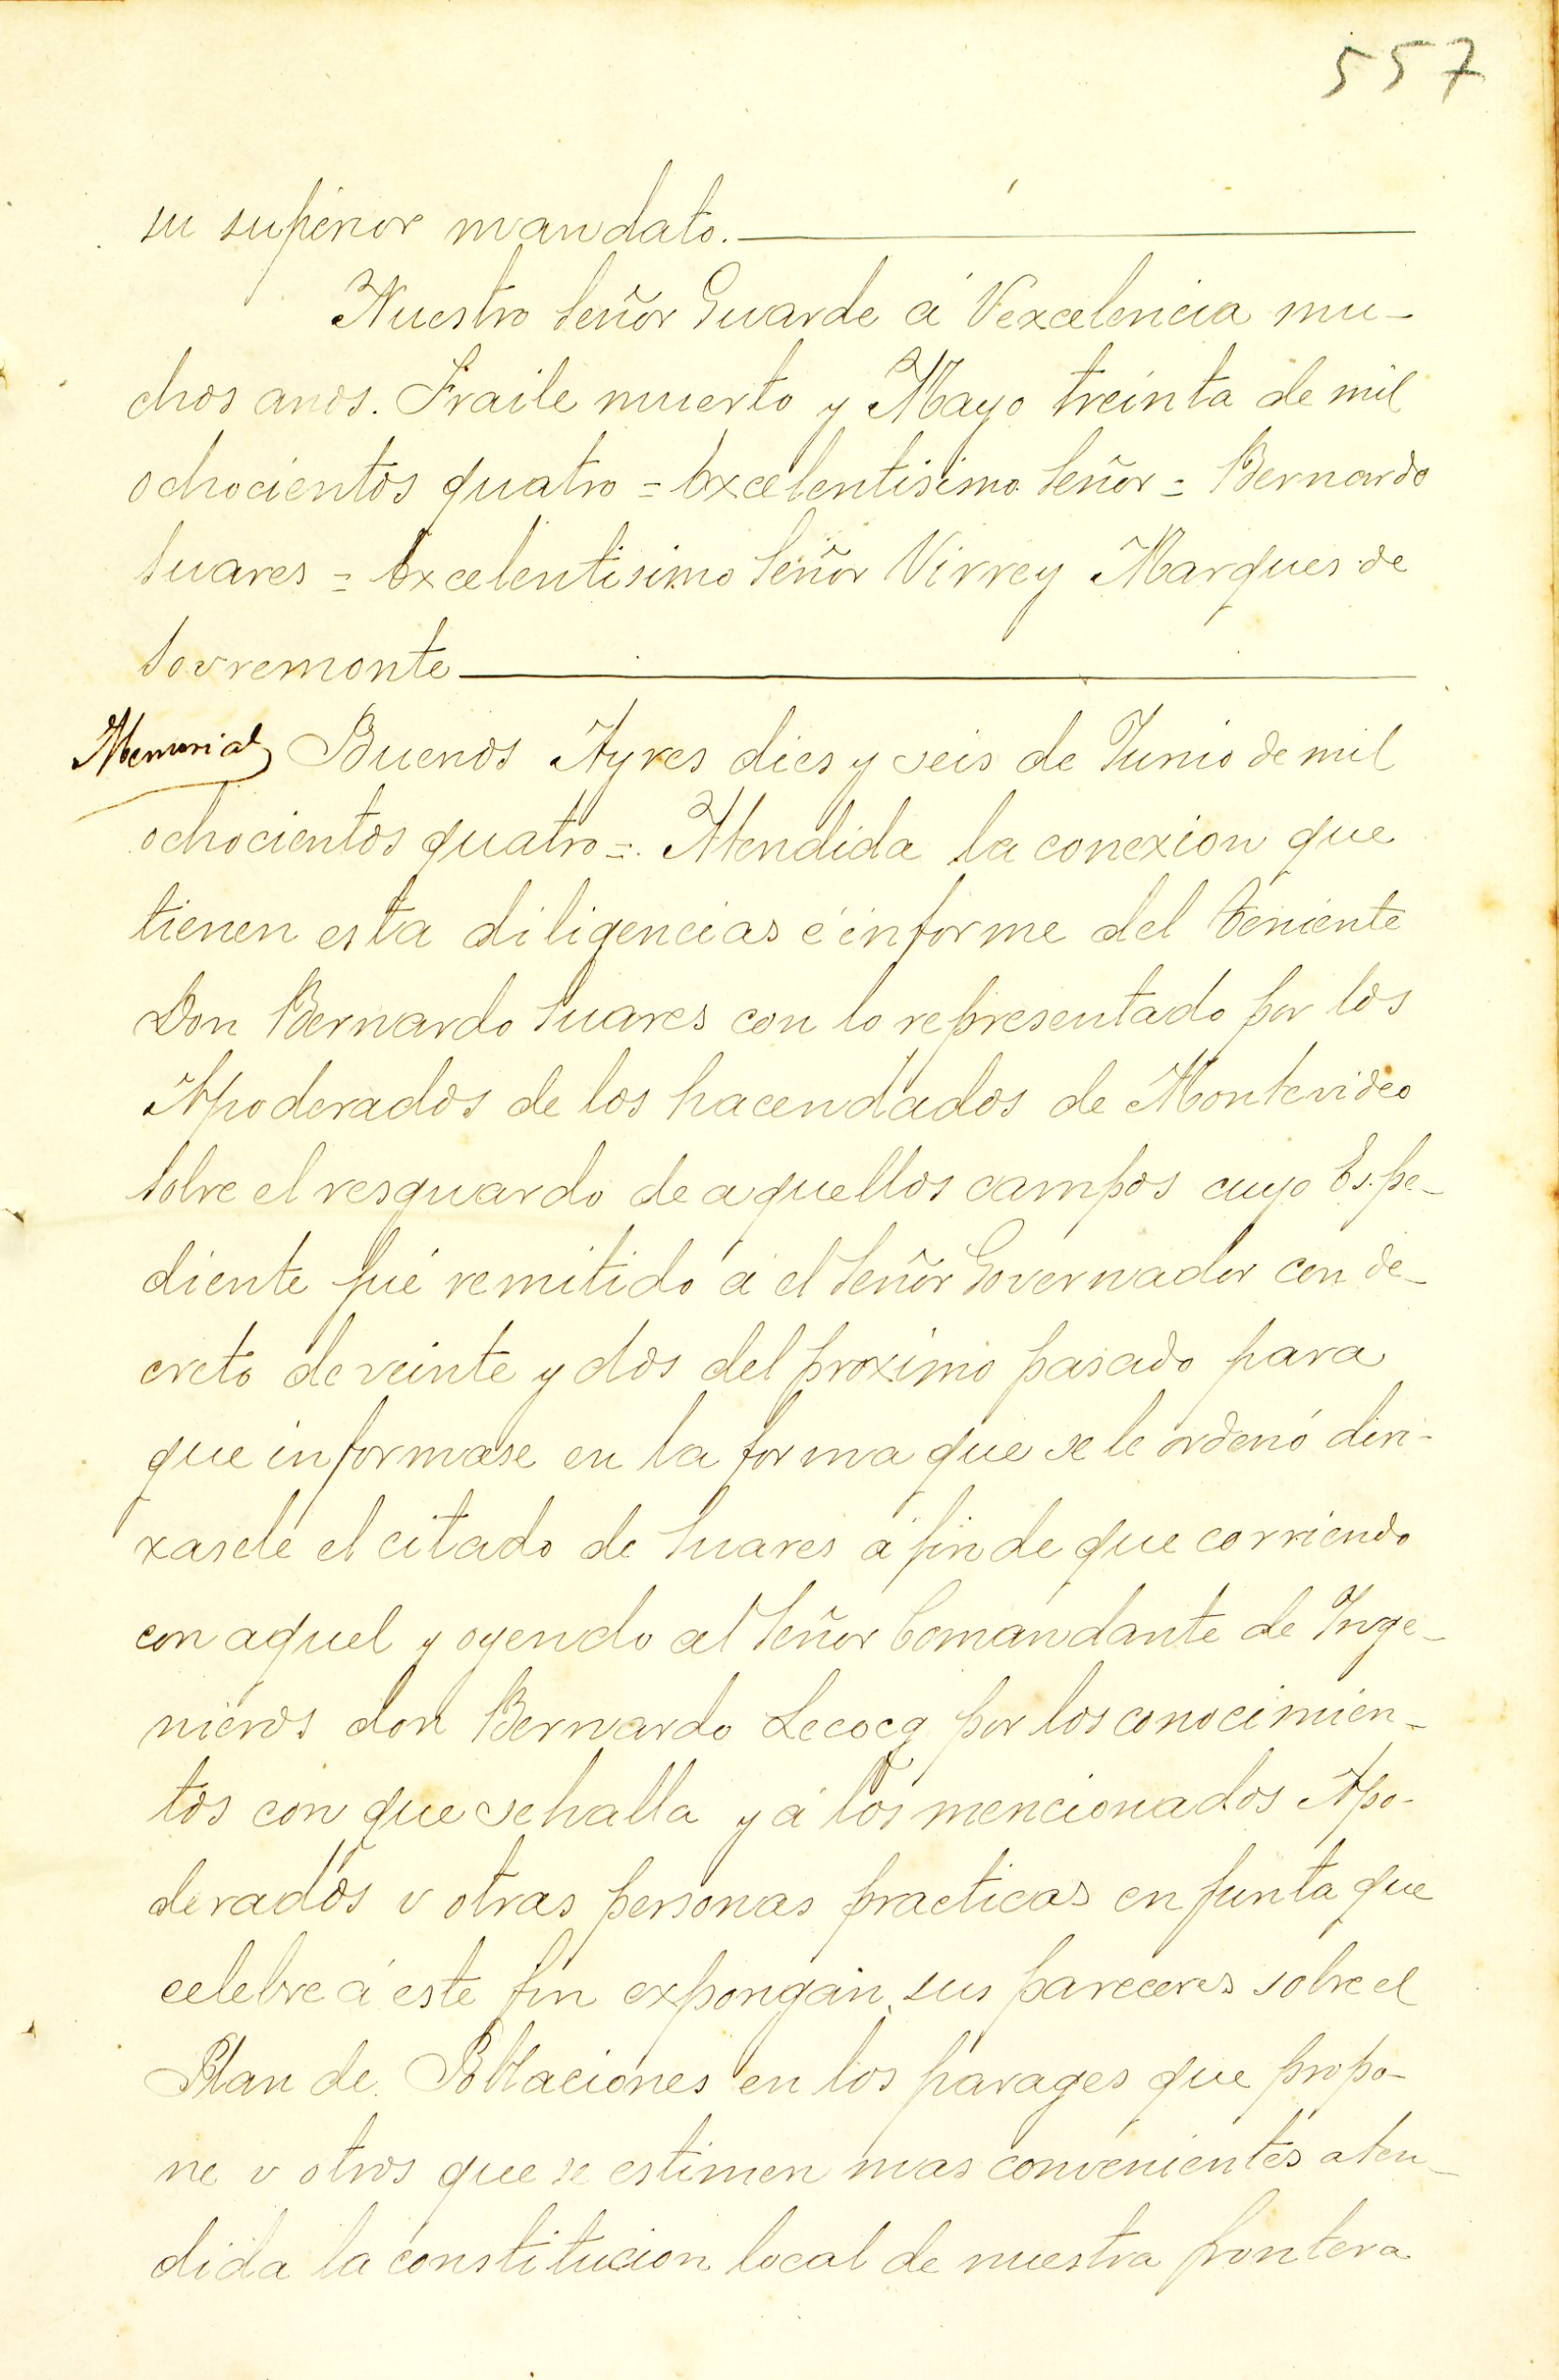 557
su superior mandato.
Nuestro Señor Guarde á Vexcelencia mu-
chos anos. Fraile muerto y Mayo treinta de mil
ochocientos quatro = Excelentisimo Señor = Bernardo
Suares = Excelentisimo Señor Virrey Marques de
Sovremonte
Memorial Buenos Ayres dies y seis de Junio de mil
ochocientos quatro =. Atendida la conexion que
tienen esta diligencias é informe del Teniente
Don Bernardo Suares con lo representado por los
Apoderados de los hacendados de Montevideo
sobre el resguardo de aquellos campos cuyo Espe-
diente fué remitido á el Señor Governador con de-
creto de veinte y dos del proximo pasado para
que informase en la forma que se le ordenó diri-
xasele el citado de Suares á fin de que corriendo
con aquel y oyendo al Señor Comandante de Inge-
nieros don Bernardo Lecocq por los conocimien-
tos con que se halla y á los mencionados Apo-
derados v otras personas practicas en junta que
celebre á este fin expongan sus pareceres sobre el
Plan de Poblaciones en los parages que propo-
ne v otros que se estimen mas convenientes aten-
dida la constitucion local de nuestra frontera